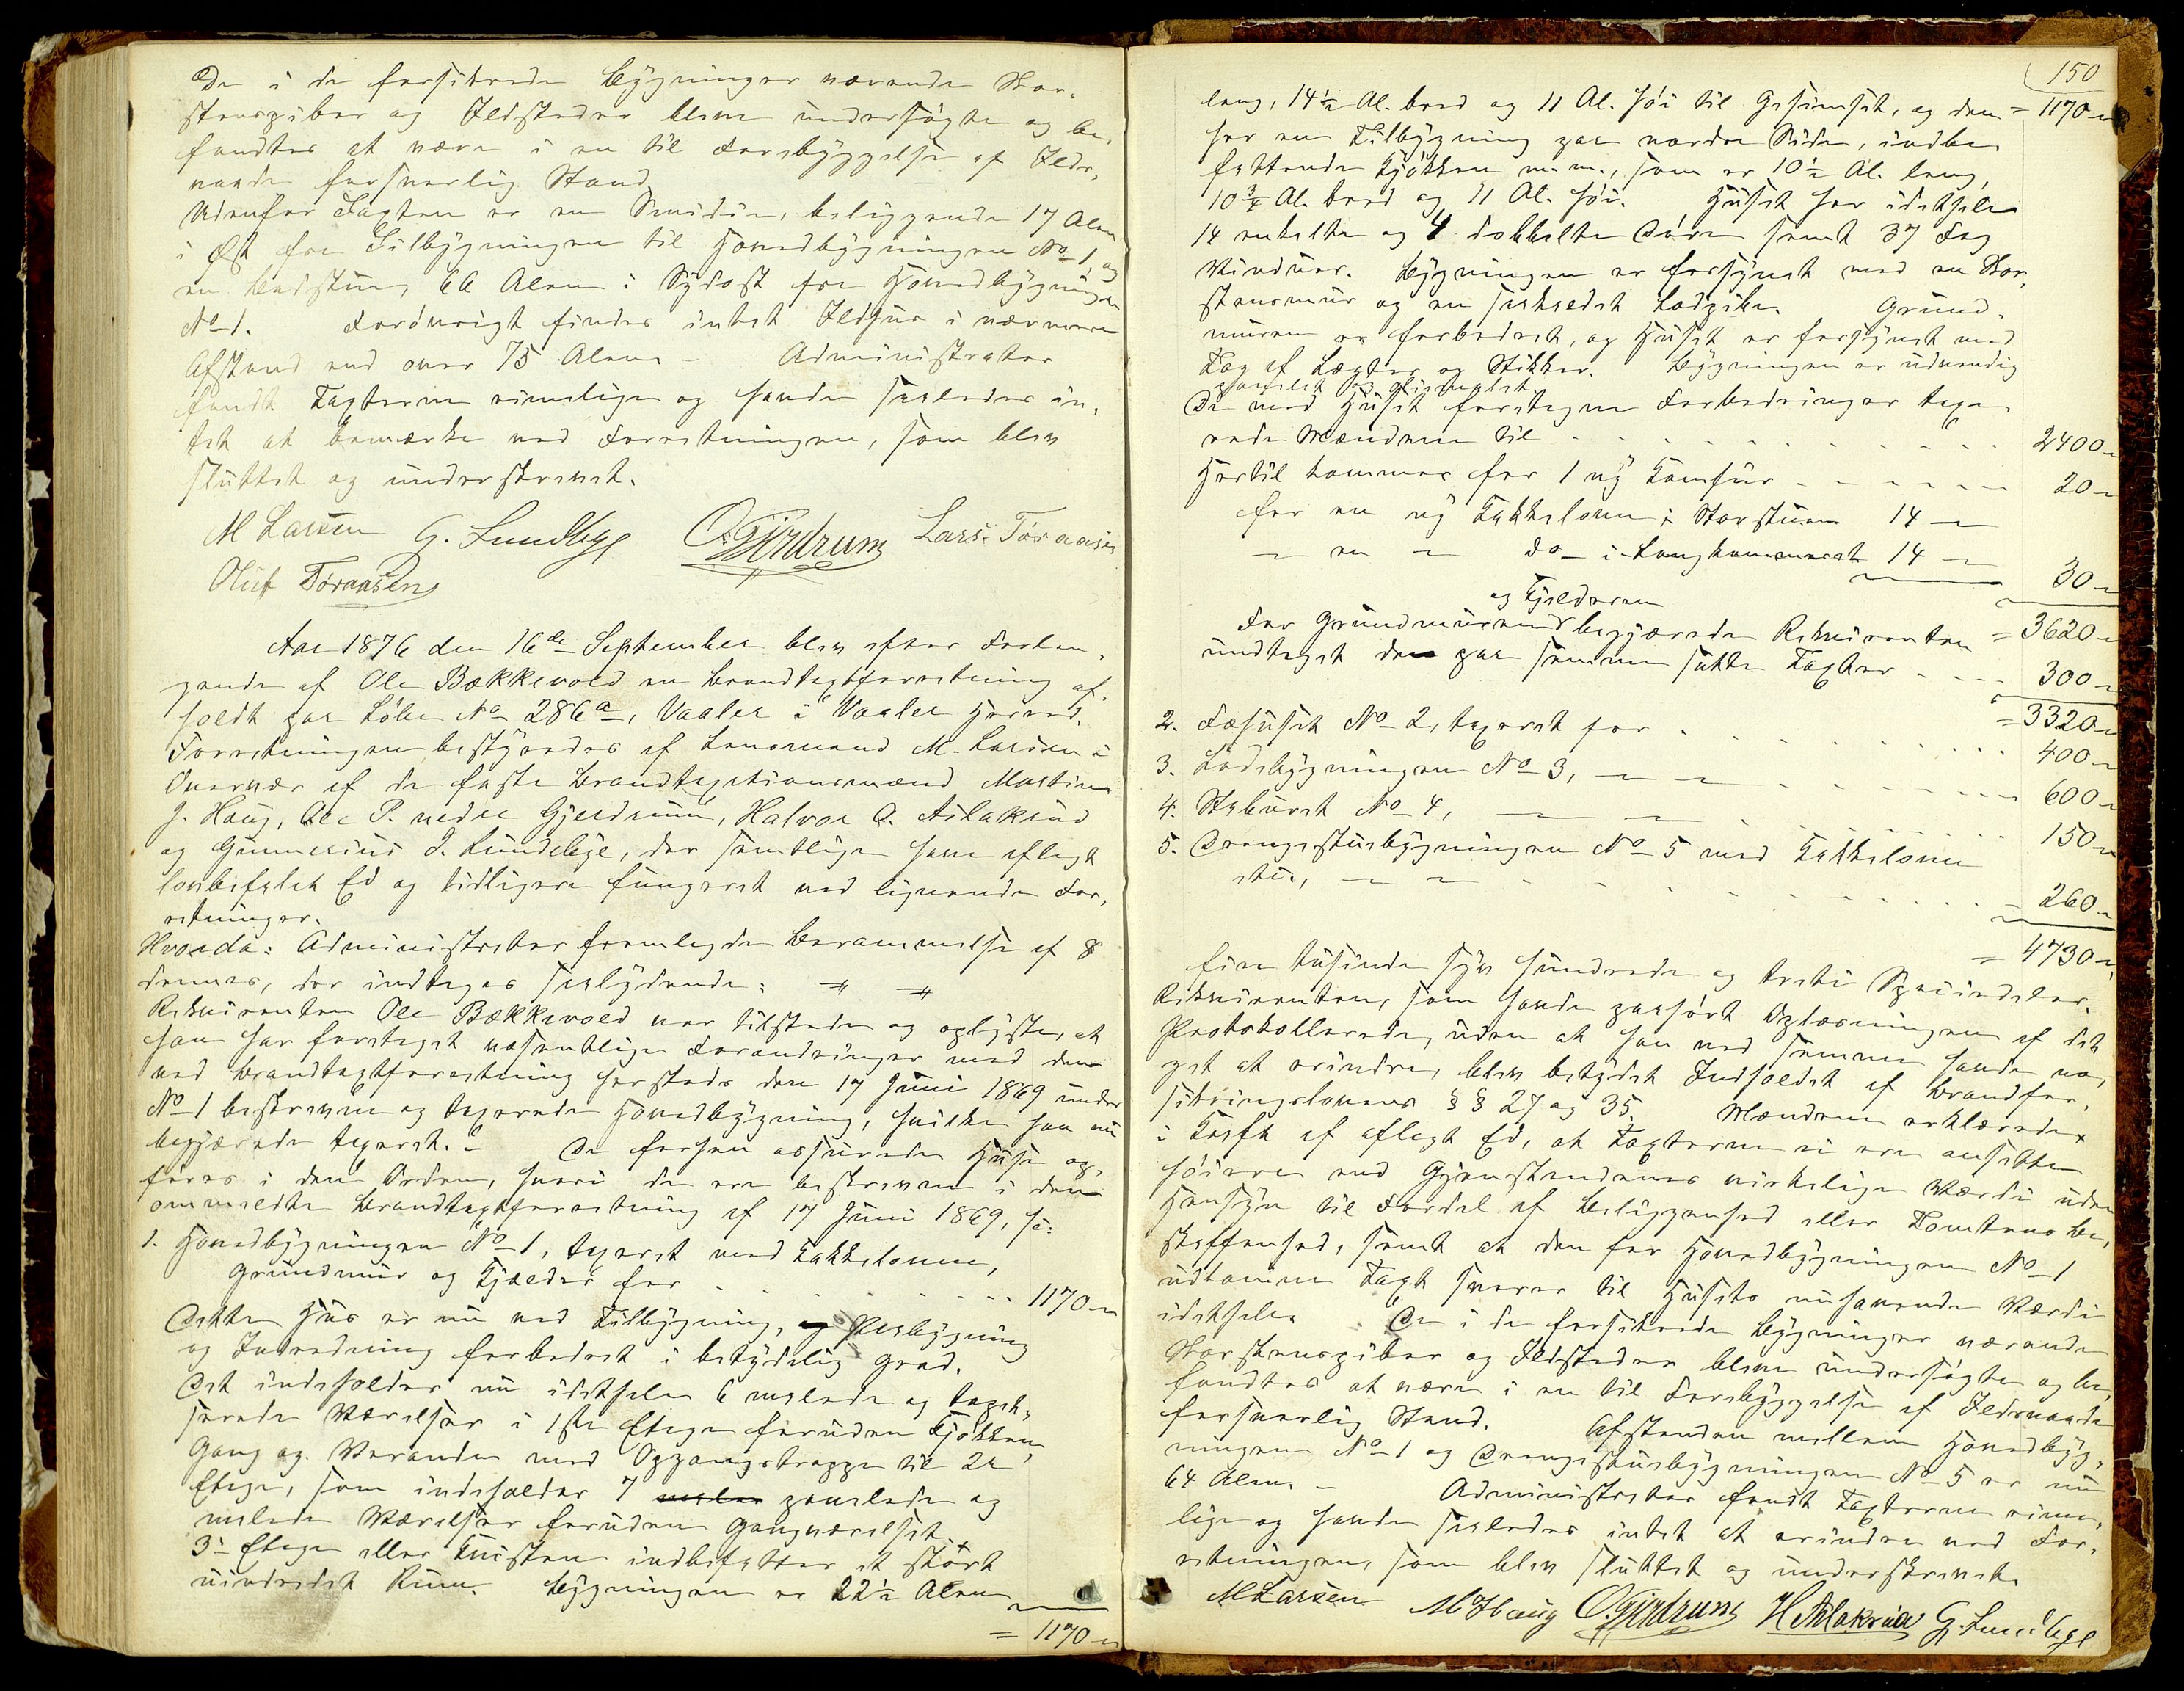 De i de forsikrede Bygninger værende Skor-
stenspiber og Ildsteder bleve undersøgte og be-
fandtes at være i en til Forebyggelse af Ilds-
vaade forsvarlig Stand
Udenfor Taxten er en Smidie, beliggende 17 Alen
i Øst for Tilbygningen til Hovedbygningen No 1, og
en Badstue, 66 Alen i Sydost for Hovedbygningen
No 1. Forøvrigt findes intet Ildhus i nærmere
Afstand end over 75 Alen - Administrator
fandt Taxterne rimelige og havde saaledes in-
tet at bemærke ved Forretningen, som blev
sluttet og underskrevet.
M Larsen G. Lundbye O. Gjerdrum Lars. Toraasen
Oluf Toraasen
Aar 1876 den 16de September blev efter Forlan-
gende af Ole Bækkevold en Brandtaxtforretning af-
holdt paa Løbe No 286a, Vaaler i Vaaler Herred.
Forretningen bestyredes af Lensmand M. Larsen i
Overvær af de faste Brandtaxtionsmænd Martin
J. Haug, Ole P. nedre Gjerdrum, Halvor O. Aslakrud
og Gunnerius I. Lundebye, der samtlige have aflagt
lovbefalet Ed og tidligere fungeret ved lignende For-
retninger.
Hvorda: Administrator fremlagde Berammelse af 8
dennes, der indtages saalydende: # #
Rekvirenten Ole Bækkevold var tilstede og oplyste, at
han har foretaget væsentlige Forandringer med den
ved Brandtaxtforretning hersteds den 17 Juni 1869 under
No 1 beskrevne og taxerede Hovedbygning, hvilken han nu
begjærede taxeret. - De forhen assurerede Huse op-
føres i den Orden, hvori de ere beskrevne i den
ommeldte Brandtaxtforretning af 17 Juni 1869, saa:
1. Hovedbygningen No 1, taxeret med Kakkelovne,
Grundmur og Kjælder for . . . . . . . 1170 -
Dette Hus er nu ved Tilbygning, og Paabygning
og Indredning forbedret i betydelig Grad.
Det indeholder nu idethele 6 malede og tapet-
serede Værelser i 1ste Etage foruden Kjøkken,
Gang og Veranda med Opgangstrappe til 2n
Etage, som indeholder 7 malede panelede og
malede Værelser foruden Gangværelset.
3ie Etage eller Kvisten indbefatter et stort
uindredet Rum. Bygningen er 22½ Alen
= 1170 -
150
lang, 14½ Al. bred og 11 Al. høi til Gesimset, og den = 1170 -
har en Tilbygning paa nordre Side, indbe-
fattende Kjøkken m. m., som er 10½ Al. lang,
10¾ Al. bred og 11 Al. høi. Huset har idethele
14 enkelte og 4 dobbelte Døre samt 37 Fag
Vinduer. Bygningen er forsynet med en Skor-
stensmur og en saakaldet Ladpibe. Grund-
muren er forbedret, og Huset er forsynet med
Tag af Lægter og Stikker. Bygningen er udvendig
panelet og oliemalet.
De med Huset foretagne Forbedringer taxe-
rede Mændene til . . . . . . . . . . 2400 -
Hertil kommer for 1 ny Komfur . . . . . . 20 -
for en ny Kakkelovn i Storstuen 14 -
- en - do - i Langkammeret 14 -
30 -
og Kjelderen
For Grundmuren begjærede Rekvirenten = 3620 -
undtaget den paa samme satte Taxter . . . . 300 -
= 3320 -
2. Fæhuset No 2, taxeret for . . . . . . . 400 -
3. Ladebygningen No 3, - - . . . . . . 600 -
4. Stabburet No 4, - - . . . . . . 150 -
5. Drengestubygningen No 5 med Kakkelovne
etc., - - . . . . . . . 260 -
= 4730 -
fire tusinde syv hundrede og tretti Speciedaler.
Rekvirenten, som havde paahørt Oplæsningen af det
Protokollerede, uden at han ved samme havde no-
get at erindre, blev betydet Indholdet af Brandfor-
sikringslovens §§ 27 og 35. Mændene erklærede
i Kraft af aflagt Ed, at Taxterne ei ere ansatte
høiere end Gjenstandenes virkelige Værdi uden
Hensyn til Fordel af Beliggenhed eller Tomtens Be-
skaffenhed, samt at den for Hovedbygningen No 1
udkomne Taxt svarer til Husets nuhavende Værdi
idethele. De i de forsikrede Bygninger værende
Skorstenspiber og Ildsteder bleve undersøgte og be-
fandtes at være i en til Forebyggelse af Ildsvaade
forsvarlig Stand. Afstanden mellem Hovedbyg-
ningen No 1 og Drengestubygningen No 5 er nu
64 Alen - Administrator fandt Taxterne rime-
lige og havde saaledes intet at erindre ved For-
retningen, som blev sluttet og underskrevet.
M Larsen M J Haug O. Gjerdrum H Aslakrud G. Lundbye